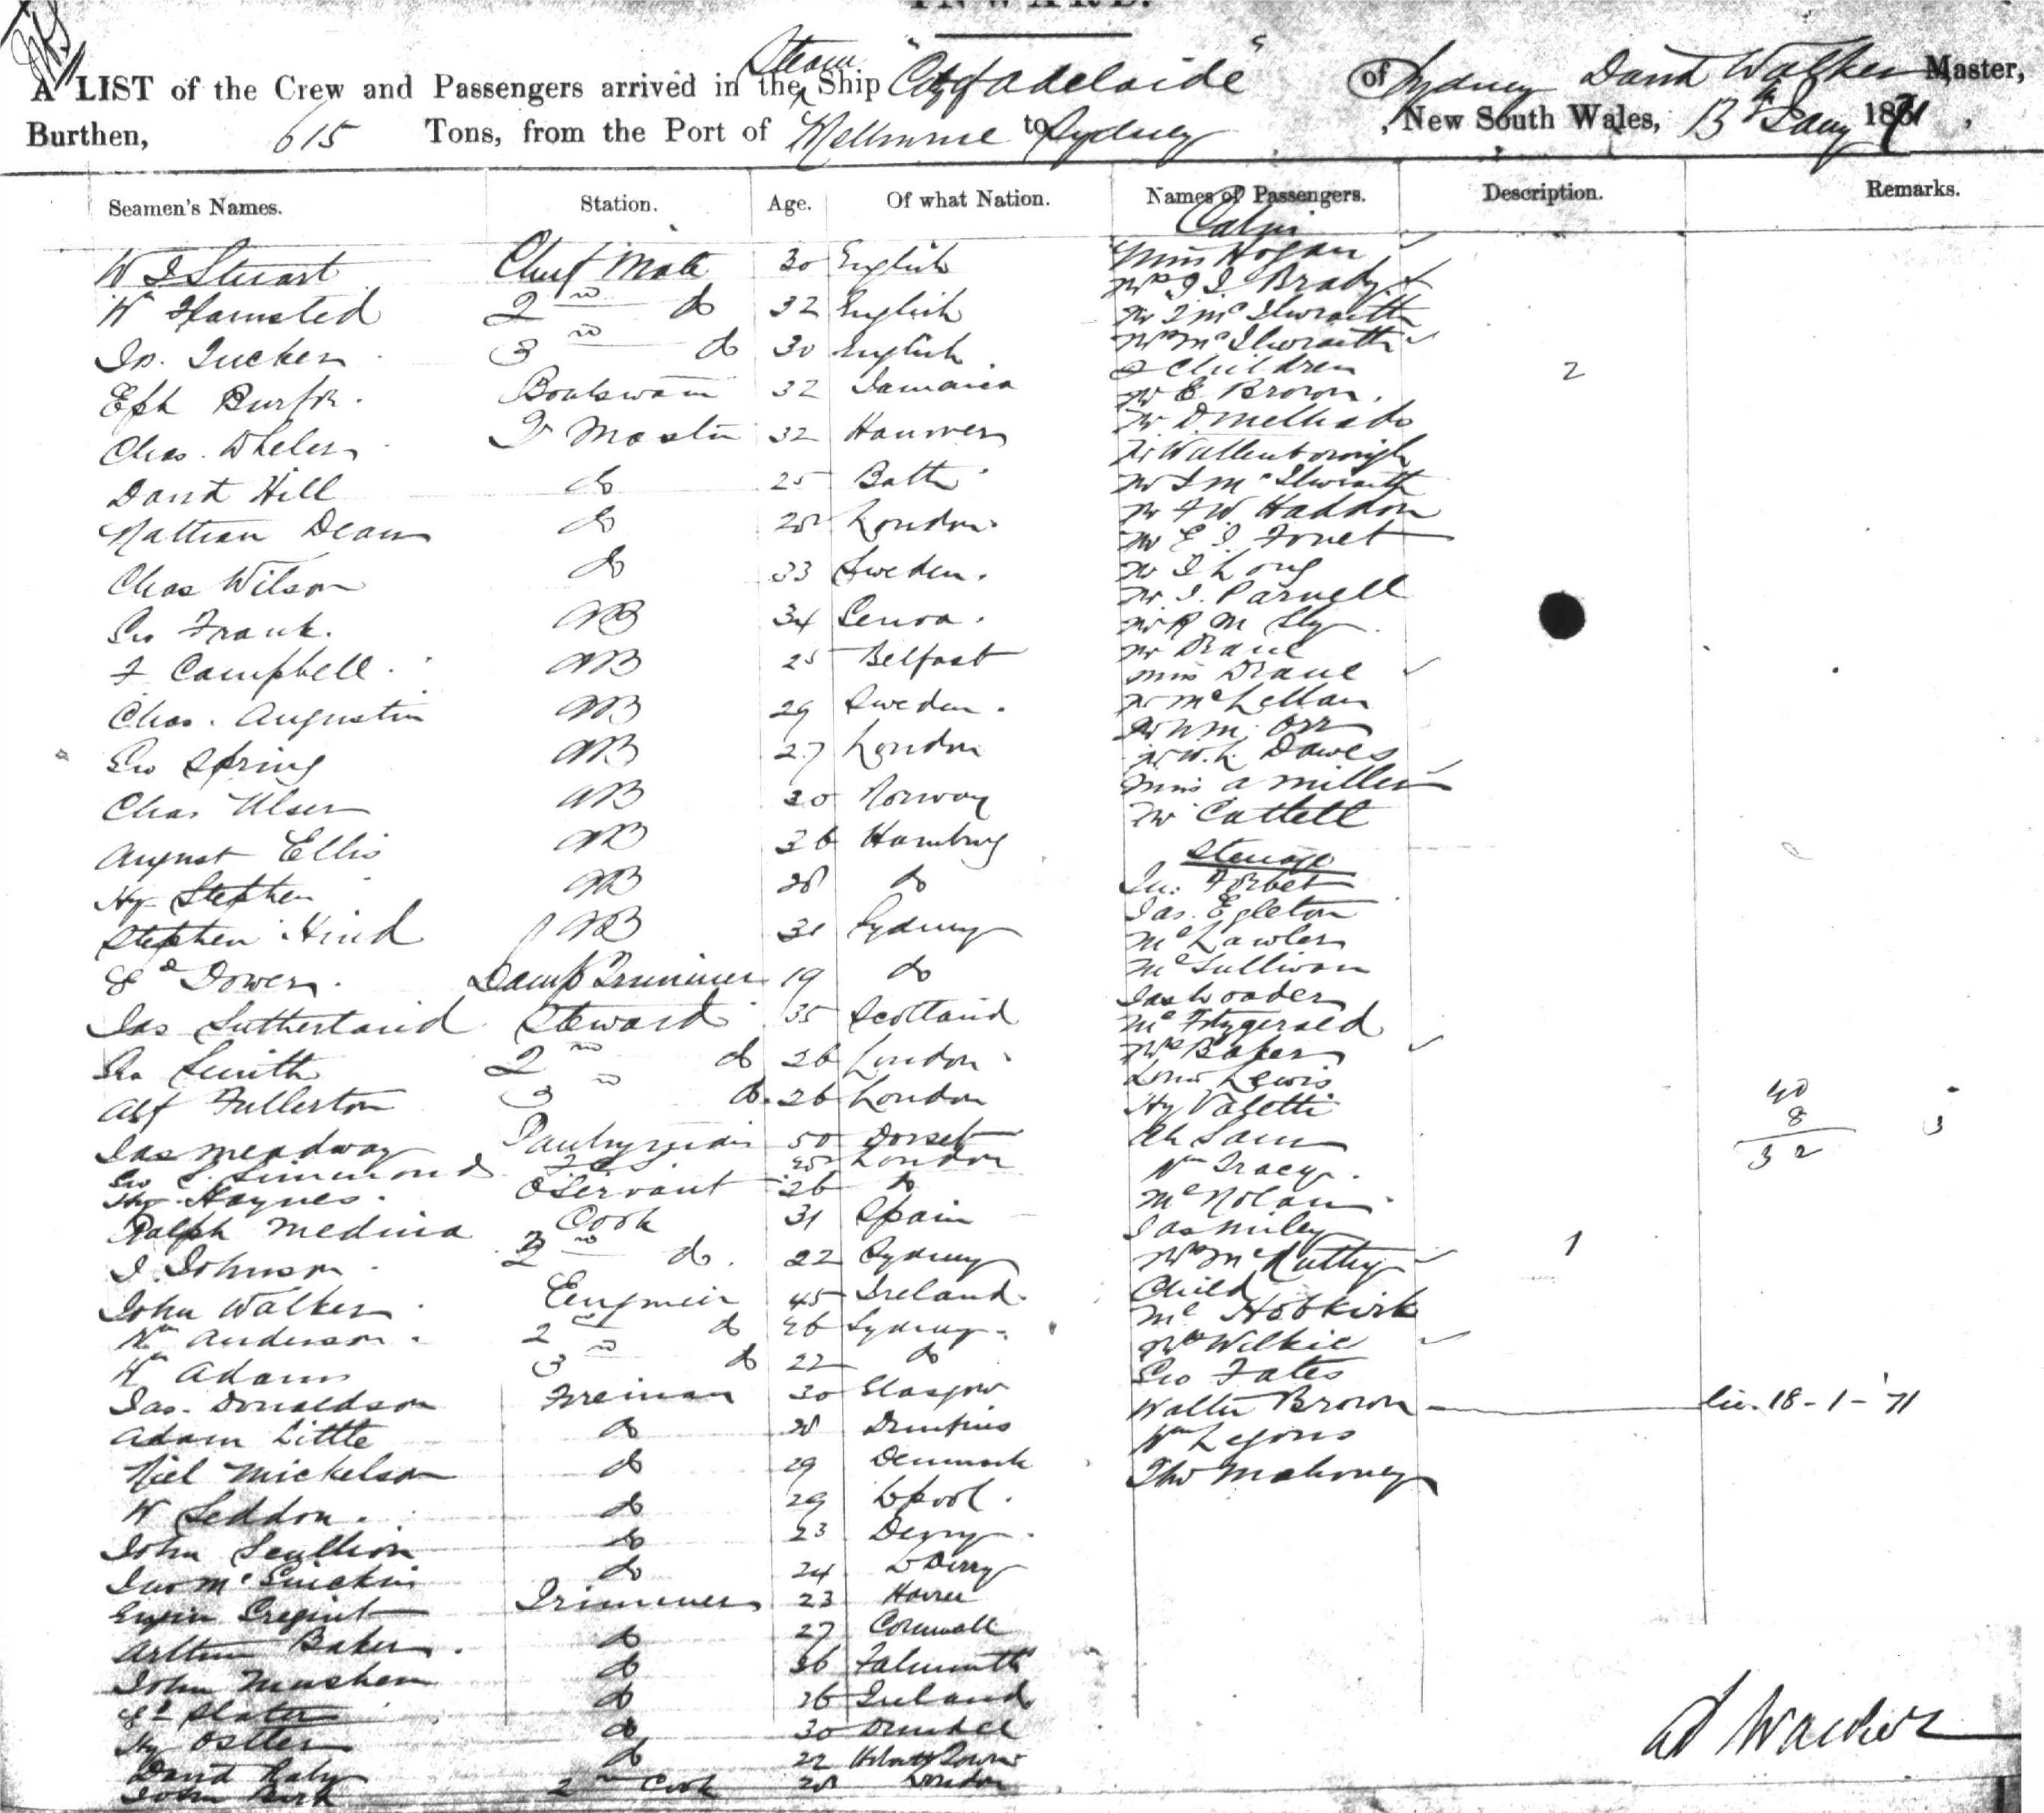 INWARD.
A LIST of the Crew and Passengers arrived in the Steam Ship "City of Adelaide" of Sydney David Walker Master,
Burthen, 615 Tons, from the Port of Melbourne to Sydney, New South Wales, 13th Jany 1871,
Seamen's Names. Station. Age. Of what Nation. Names of Passengers. Description. Remarks.
Cabin
W J Stuart Chief Mate 30 English Miss Hogan
Wm Hamsted 2nd do 32 English Mrs J J Brady
Js. Tucker 3rd do 30 English Mr J McIlwraith
Mrs McIlwraith
2 Children 2
Eph Burfk. Boatswain 32 Jamaica Mr E Brown.
Chas. Wheler Qr Master 32 Hanover Mr D Melhado
Mr Wallenborough
David Hill do 25 Bath Mr J McIlwraith
Nathan Dean do 28 London Mr F W Haddon
Mr E J Fonet
Chas Wilson do 33 Sweden. Mr J Long
Mr J. Parnell
Geo Frank. AB 34 Genoa. Mr R M Sly
Mr Drane
F Campbell AB 25 Belfast Miss Drane
Chas. Augustin AB 29 Sweden. Mr McLellan
Mr W M. Orr
Geo Spring AB 27 London Mr W. L Dawes
Miss A Miller
Chas Ulsen AB 30 Norway Mr Cattell
August Ellis AB 36 Hamburg
Steerage
Hy Stephen AB 28 do Jn. Forbet
Jas. Egleton
Stephen Hind AB 31 Sydney Mc Lawler
Mc Sullivan
Ed Dower. Lamp Trimmer 19 do Jas Wooder
Jas Sutherland Steward 35 Scotland Mc Fitzgerald
Geo Smith 2nd do 26 London Mrs Baker
Louis Lewis
Alf Fullerton 3rd do. 26 London Hy Valetti 40
8
Jas Meadway Pantryman 50 Dorset Ah Sam 32
Geo S. Simmonds London Wm Tracy.
Hy. Haynes. O Servant 26 do Mc Nolan
Ralph Medina Cook 31 Spain Jas Miley
J. Johnson 2nd do. 22 Sydney Mrs McKuthy 1
Child
John Walker Engineer 45 Ireland. Mc Hobkirk
Wm Anderson. 2nd do 26 Sydney. Mrs Wilkie
Wm Adams 3rd do 22 do Geo Fates
Jas. Donaldson Fireman 30 Glasgow Walter Brown lic. 18-1-'71
Adam Little do 28 Dumfries Wm Lyons
Niel Mickelson do 29 Denmark Thos Mahoney
W Seddon. do 29 Lpool.
John Scullion do 23 Derry.
McGuickin do 24 L Derry
Trimmer 23 Havre
Arthur Baker. do 27 Cornwall
John Mushen do 36 Falmouth
Ed Slater do 26 Ireland
Hy Ostler do 30 Dundee
David Raby do 22 Hobart Town
John Burk 2nd Cook 28 London
D Walker